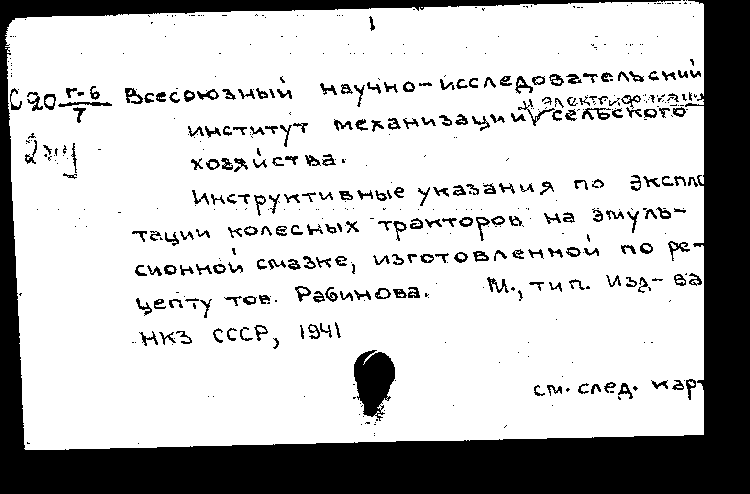 1
С 20 г-6/7 Всесоюзный научно-исследовательский
и электрификации
институт механизации сельского
хозяйства.
Инструктивные указания по экспло
тации колесных тракторов на эмуль-
сионной смазке, изготовленной по ре-
цепту тов. Рабинова. М., тип. Изд-ва
НКЗ СССР, 1941
см. след. карт